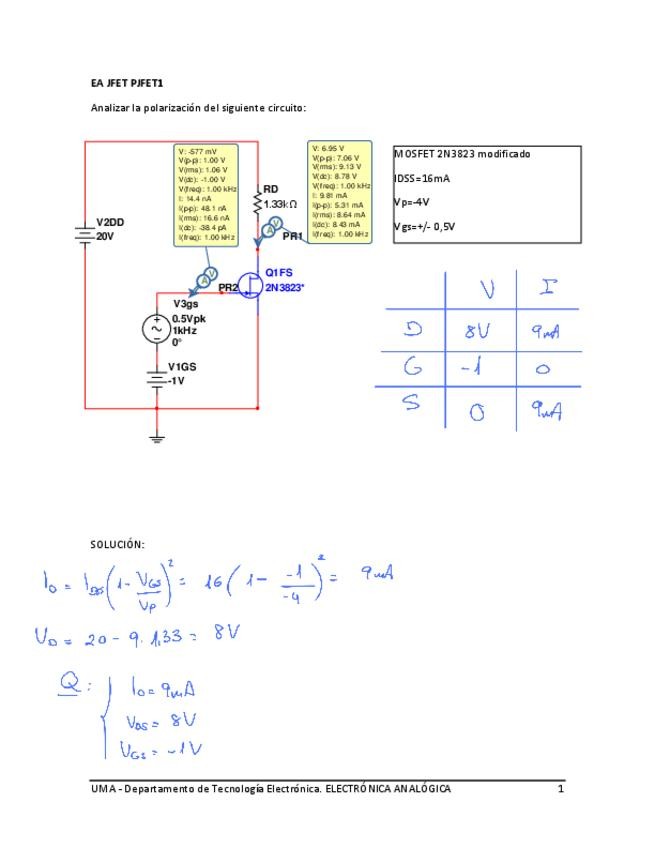 EA JFET PJFET1
Analizar la polarización del siguiente circuito:
V: -577 mV
V(p-p): 1.00 V
V(rms): 1.06 V
V(dc): -1.00 V
V(freq): 1.00 kHz
I: 14.4 nA
I(p-p): 48.1 nA
I(rms): 16.6 nA
I(dc): -38.4 pA
I(freq): 1.00 kHz
V: 6.95 V
V(p-p): 7.06 V
V(rms): 9.13 V
V(dc): 8.78 V
V(freq): 1.00 kHz
I: 9.81 mA
I(p-p): 5.31 mA
I(rms): 8.64 mA
I(dc): 8.43 mA
I(freq): 1.00 kHz
MOSFET 2N3823 modificado
IDSS=16mA
Vp=-4V
Vgs=+/- 0,5V
RD
1.33kΩ
V2DD
20V
A V
PR1
Q1FS
2N3823*
A V
PR2
V3gs
0.5Vpk
1kHz
0°
V1GS
-1V
V I
D 8V 9mA
G -1 0
S 0 9mA
SOLUCIÓN:
ID = IDSS(1 - VGS/VP)² = 16(1 - -1/-4)² = 9mA
VD = 20 - 9. 1,33 = 8V
Q: ID = 9mA
VDS = 8V
VGS = -1V
UMA - Departamento de Tecnología Electrónica. ELECTRÓNICA ANALÓGICA 1